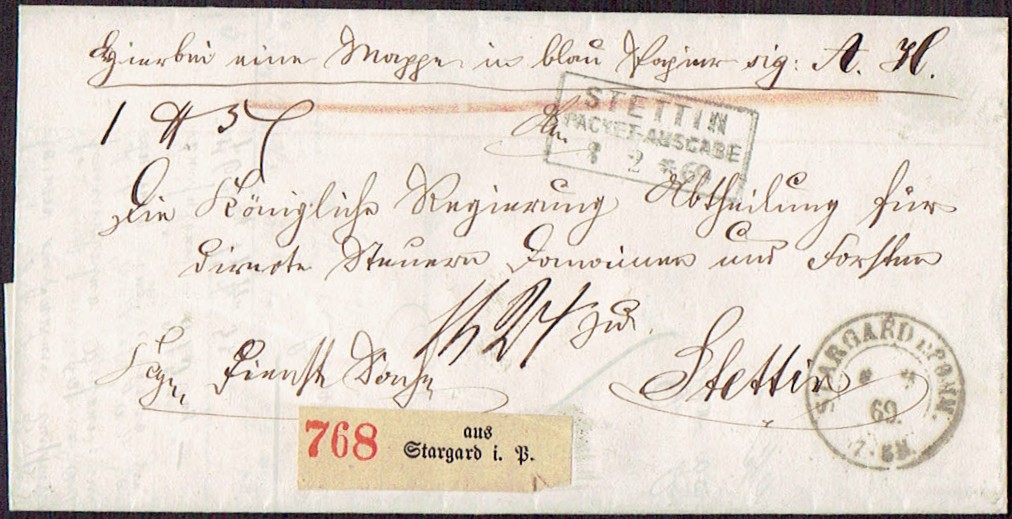 Hierbei eine Mappe in blau Papier sig: A. H.
An
STETTIN
PACKET-AUSGABE
2 * 69
Die Königliche Regierung Abtheilung für
directe Steuern Domainen und Forsten
zu
Stettin
Dienst Sache
STARGARD i. POMM.
* *
69.
768 aus
Stargard i. P.